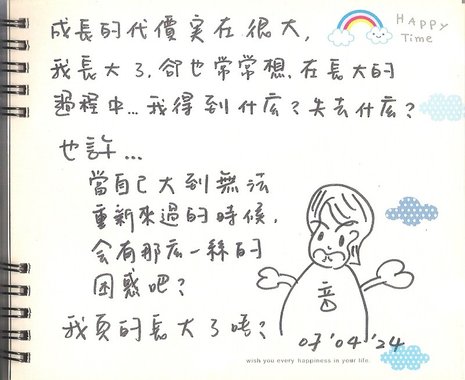 成長的代價實在很大,
HAPPY
Time
我長大了,卻也常常想,在長大的
過程中...我得到什庅?失去什庅?
也許...
當自己大到無法
重新來過的時候,
会有那庅一絲的
困惑吧?
我真的長大了唔?
音
07'04'24
wish you every happiness in your life.